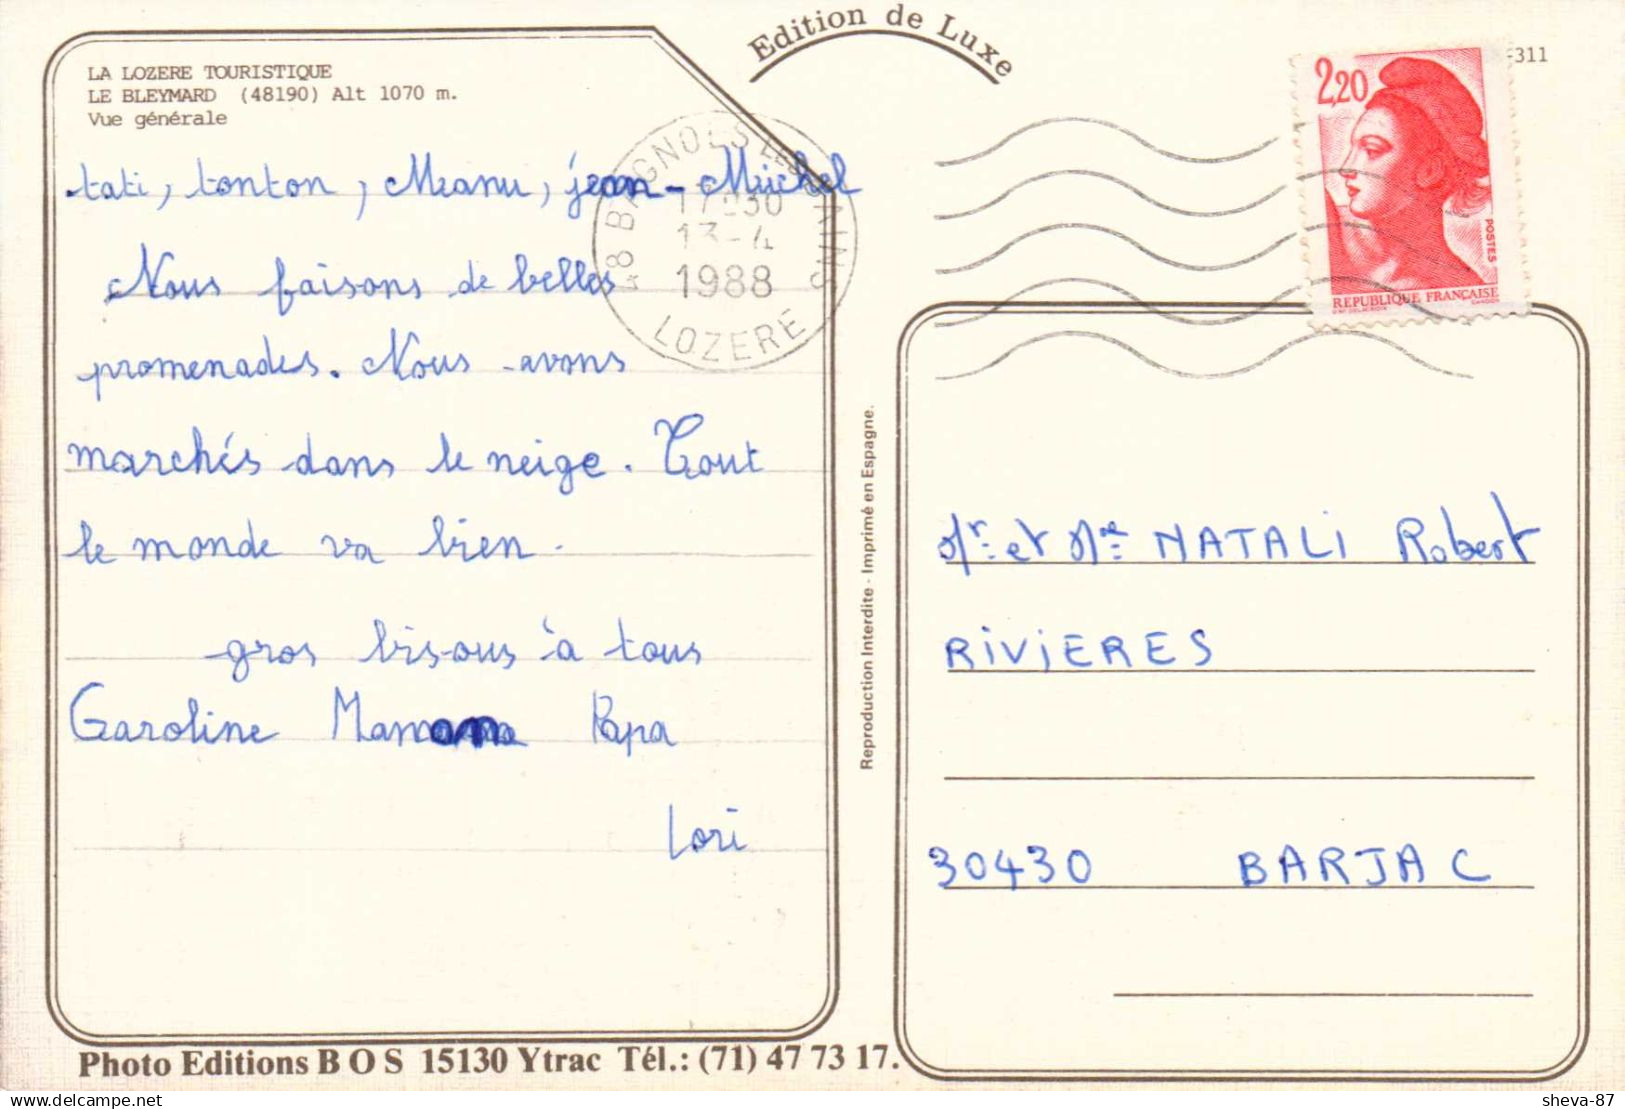 Edition de Luxe
LA LOZERE TOURISTIQUE
LE BLEYMARD (48190) Alt 1070 m.
Vue générale
-311
2,20
POSTES
REPUBLIQUE FRANÇAISE
48 BAGNOLS LES BAINS
17H30
13-4
1988
LOZERE
tati, tonton, Manu, jean-Michel
Nous faisons de belles
promenades. Nous avons
marchés dans le neige. Tout
le monde va bien.
gros bisous à tous
Caroline Maman Papa
Lori
Reproduction Interdite - Imprimé en Espagne.
Mr et Mme NATALI Robert
RIVIERES
30430 BARJAC
Photo Editions B O S 15130 Ytrac Tél.: (71) 47 73 17.
sheva-87